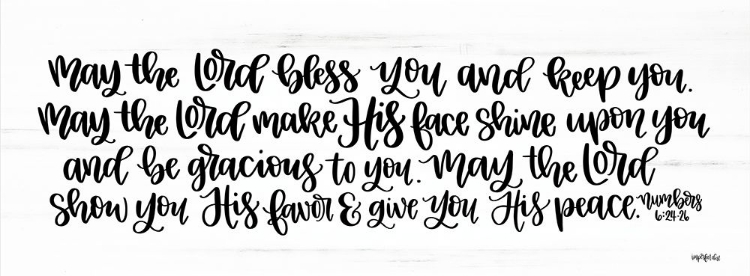 May the Lord bless you and keep you.
May the Lord make His face shine upon you
and be gracious to you. May the Lord
show you His favor & give you His peace. Numbers
6:24-26